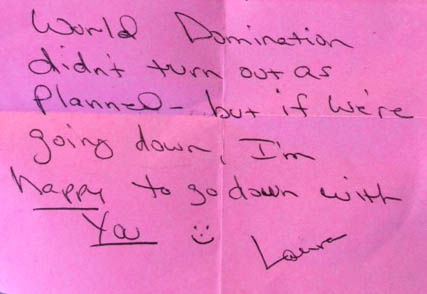 World Domination
didn't turn out as
planned - but if we're
going down, I'm
happy to go down with
You ☺
Laura